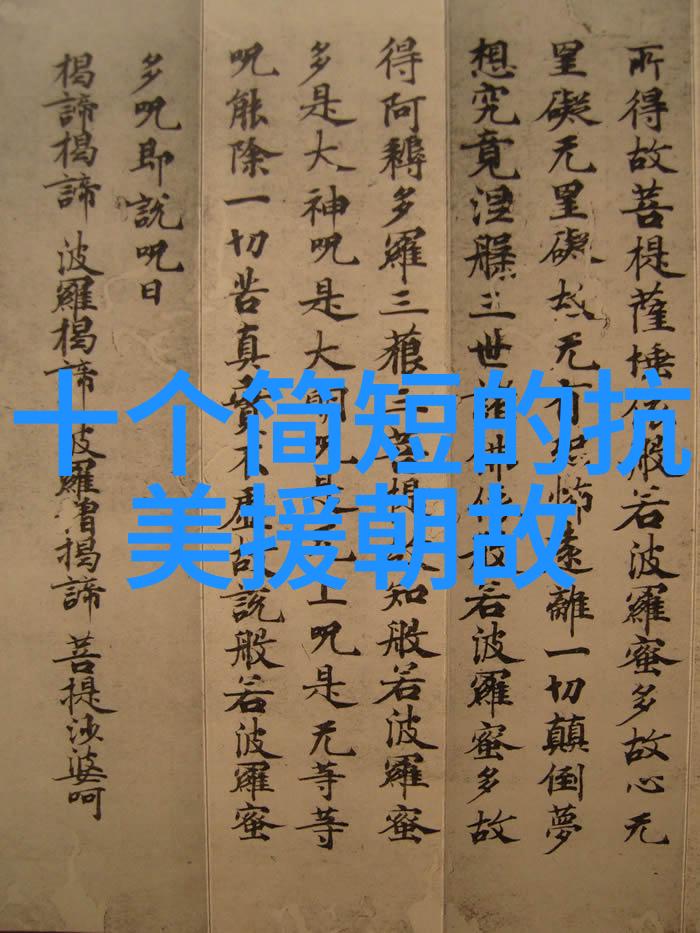 十个简短的抗
美援朝故
所得故菩提薩埵依般若波羅蜜多故心无
罣礙无罣礙故无有恐怖遠離一切顛倒夢
想究竟涅槃三世諸佛依般若波羅蜜多故
得阿耨多羅三藐三菩提故知般若波羅蜜
多是大神呪是大明呪是无上呪是无等等
呪能除一切苦真實不虛故說般若波羅蜜
多呪即說呪曰
揭諦揭諦 波羅揭諦 波羅僧揭諦 菩提沙婆呵